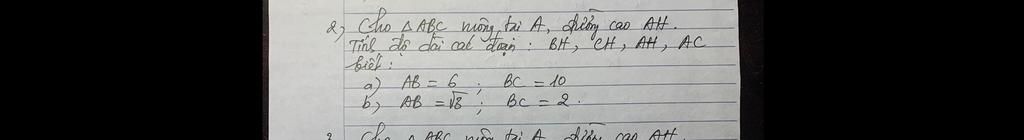 2) Cho △ ABC vuông tại A, đường cao AH.
Tính độ dài các đoạn : BH, CH, AH, AC
biết :
a) AB = 6 ; BC = 10
b) AB = √8 ; BC = 2.
Cho △ ABC vuông tại A, đường cao AH.